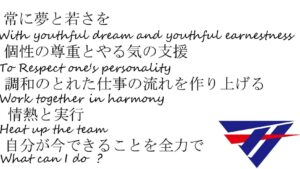 常に夢と若さを
With youthful dream and youthful earnestness
個性の尊重とやる気の支援
To Respect one's personality
調和のとれた仕事の流れを作り上げる
Work together in harmony
情熱と実行
Heat up the team
自分が今できることを全力で
What can I do ?